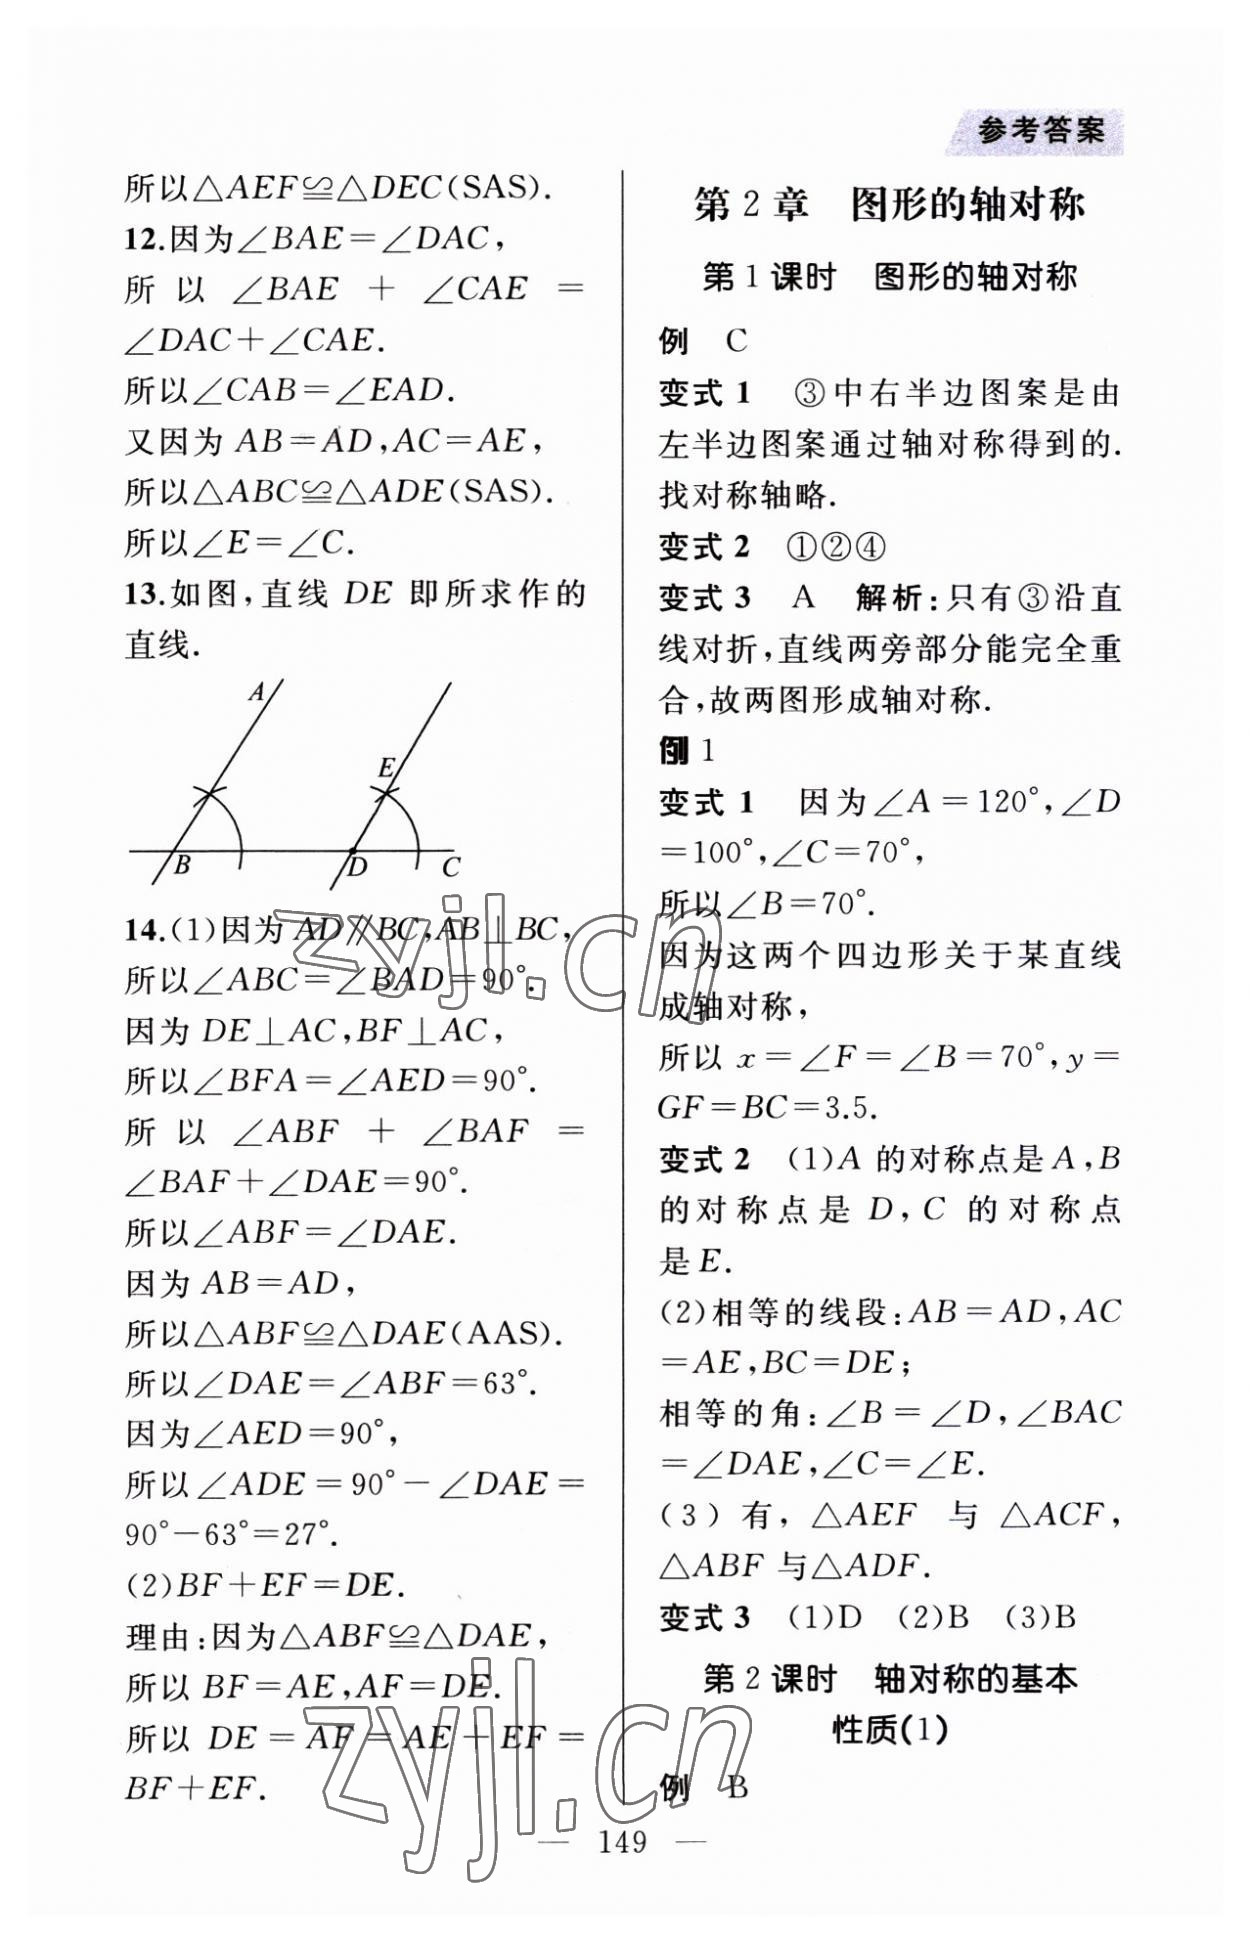 参考答案
所以△AEF≌△DEC(SAS).
12.因为∠BAE=∠DAC,
所以 ∠BAE + ∠CAE =
∠DAC+∠CAE.
所以∠CAB=∠EAD.
又因为 AB=AD,AC=AE,
所以△ABC≌△ADE(SAS).
所以∠E=∠C.
13.如图,直线 DE 即所求作的
直线.
A
E
B
D
C
14.(1)因为 AD∥BC,AB⊥BC,
所以∠ABC=∠BAD=90°.
因为 DE⊥AC,BF⊥AC,
所以∠BFA=∠AED=90°.
所以 ∠ABF + ∠BAF =
∠BAF+∠DAE=90°.
所以∠ABF=∠DAE.
因为 AB=AD,
所以△ABF≌△DAE(AAS).
所以∠DAE=∠ABF=63°.
因为∠AED=90°,
所以∠ADE=90°-∠DAE=
90°-63°=27°.
(2)BF+EF=DE.
理由:因为△ABF≌△DAE,
所以 BF=AE,AF=DE.
所以 DE=AF=AE+EF=
BF+EF.
第2章 图形的轴对称
第1课时 图形的轴对称
例 C
变式1 ③中右半边图案是由
左半边图案通过轴对称得到的.
找对称轴略.
变式2 ①②④
变式3 A 解析:只有③沿直
线对折,直线两旁部分能完全重
合,故两图形成轴对称.
例 1
变式1 因为∠A=120°,∠D
=100°,∠C=70°,
所以∠B=70°.
因为这两个四边形关于某直线
成轴对称,
所以 x=∠F=∠B=70°,y=
GF=BC=3.5.
变式2 (1)A 的对称点是A,B
的对称点是 D,C 的对称点
是E.
(2)相等的线段:AB=AD,AC
=AE,BC=DE;
相等的角:∠B=∠D,∠BAC
=∠DAE,∠C=∠E.
(3)有,△AEF 与△ACF,
△ABF 与△ADF.
变式3 (1)D (2)B (3)B
第2课时 轴对称的基本
性质(1)
例 B
— 149 —
zyjl.cn
zyjl.cn